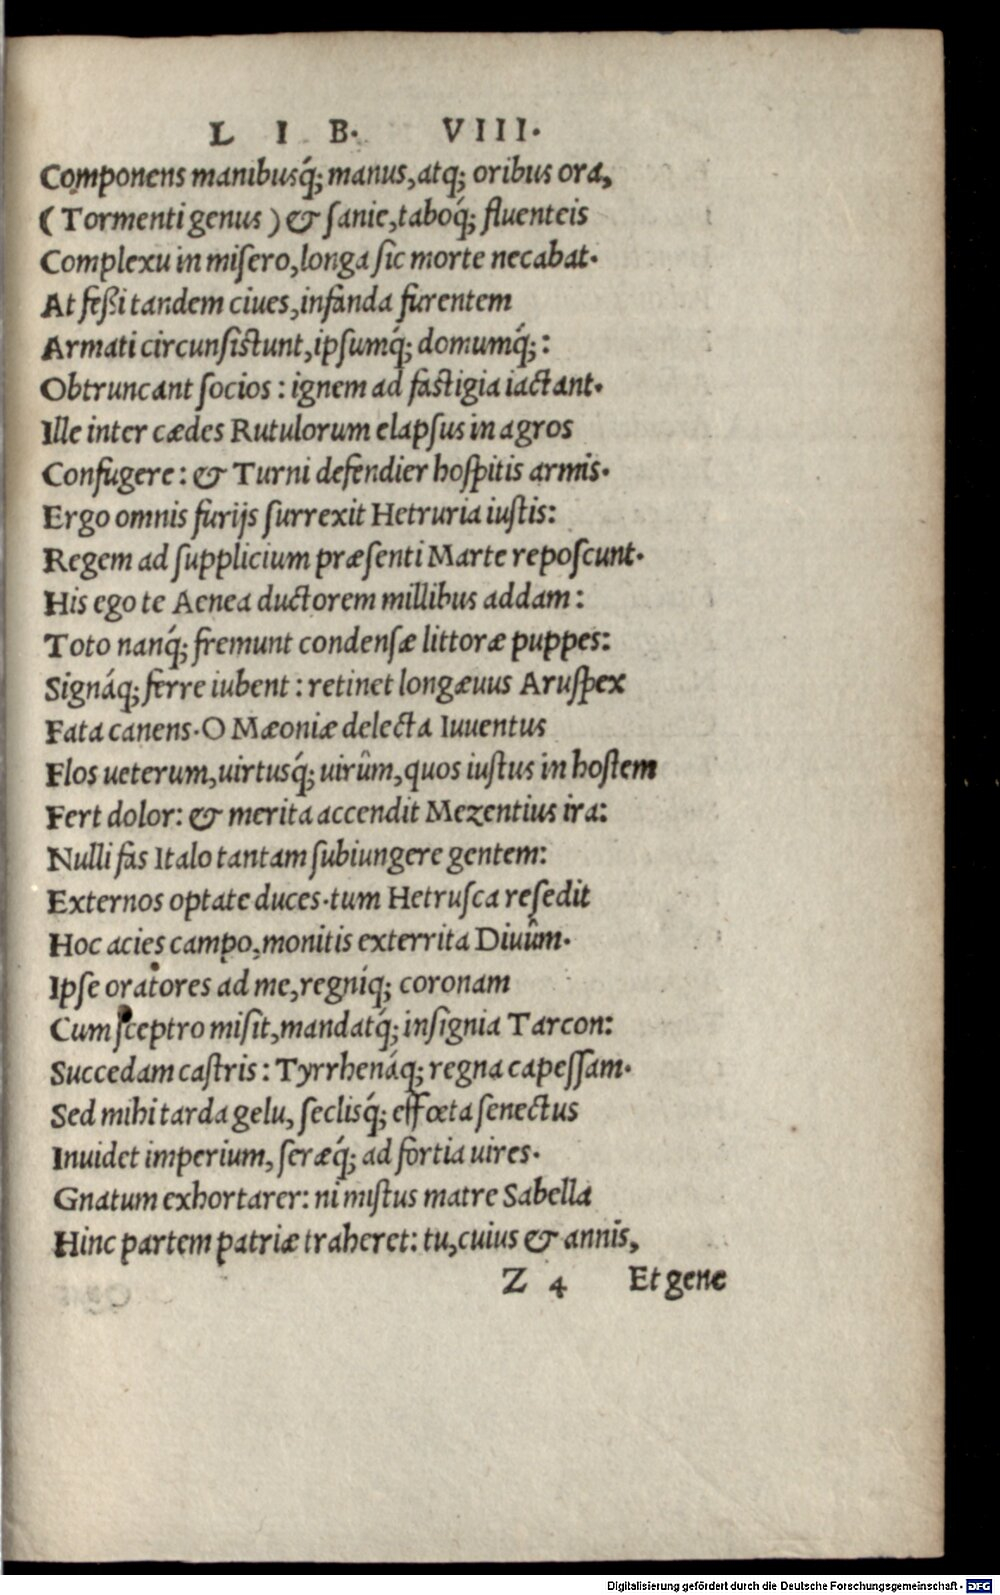 L I B. VIII.
Componens manibusq́; manus, atq; oribus ora,
(Tormenti genus) & ſanie, taboq́; fluenteis
Complexu in miſero, longa ſic morte necabat.
At feßi tandem ciues, infanda furentem
Armati circunſiſtunt, ipſumq́; domumq́;:
Obtruncant ſocios: ignem ad faſtigia iactant.
Ille inter cædes Rutulorum elapſus in agros
Confugere: & Turni defendier hoſpitis armis.
Ergo omnis furijs ſurrexit Hetruria iuſtis:
Regem ad ſupplicium præſenti Marte repoſcunt.
His ego te Aenea ductorem millibus addam:
Toto nanq́; fremunt condenſæ littoræ puppes:
Signáq; ferre iubent: retinet longæuus Aruſpex
Fata canens. O Mæoniæ delecta Iuuentus
Flos ueterum, uirtusq́; uirûm, quos iuſtus in hoſtem
Fert dolor: & merita accendit Mezentius ira:
Nulli fas Italo tantam ſubiungere gentem:
Externos optate duces. tum Hetruſca reſedit
Hoc acies campo, monitis exterrita Diuûm.
Ipſe oratores ad me, regníq; coronam
Cum ſceptro miſit, mandatq́; inſignia Tarcon:
Succedam caſtris: Tyrrhenáq; regna capeſſam.
Sed mihi tarda gelu, ſeclisq́; effœta ſenectus
Inuidet imperium, ſeræq́; ad fortia uires.
Gnatum exhortarer: ni miſtus matre Sabella
Hinc partem patriæ traheret: tu, cuius & annis,
Z 4 Et gene
Digitalisierung gefördert durch die Deutsche Forschungsgemeinschaft - DFG